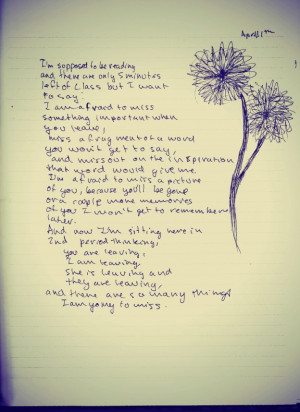 April 11th
I'm supposed to be reading
and there are only 5 minutes
left of class but I want
to say
I am afraid to miss
something important when
you leave,
miss a fragment of a word
you won't get to say,
and miss out on the inspiration
that word would give me
I'm afraid to miss a picture
of you, because you'll be gone
or a couple more memories
of you I won't get to remember
later.
And now I'm sitting here in
2nd period thinking,
you are leaving,
I am leaving,
she is leaving and
they are leaving,
and there are so many things
I am going to miss.